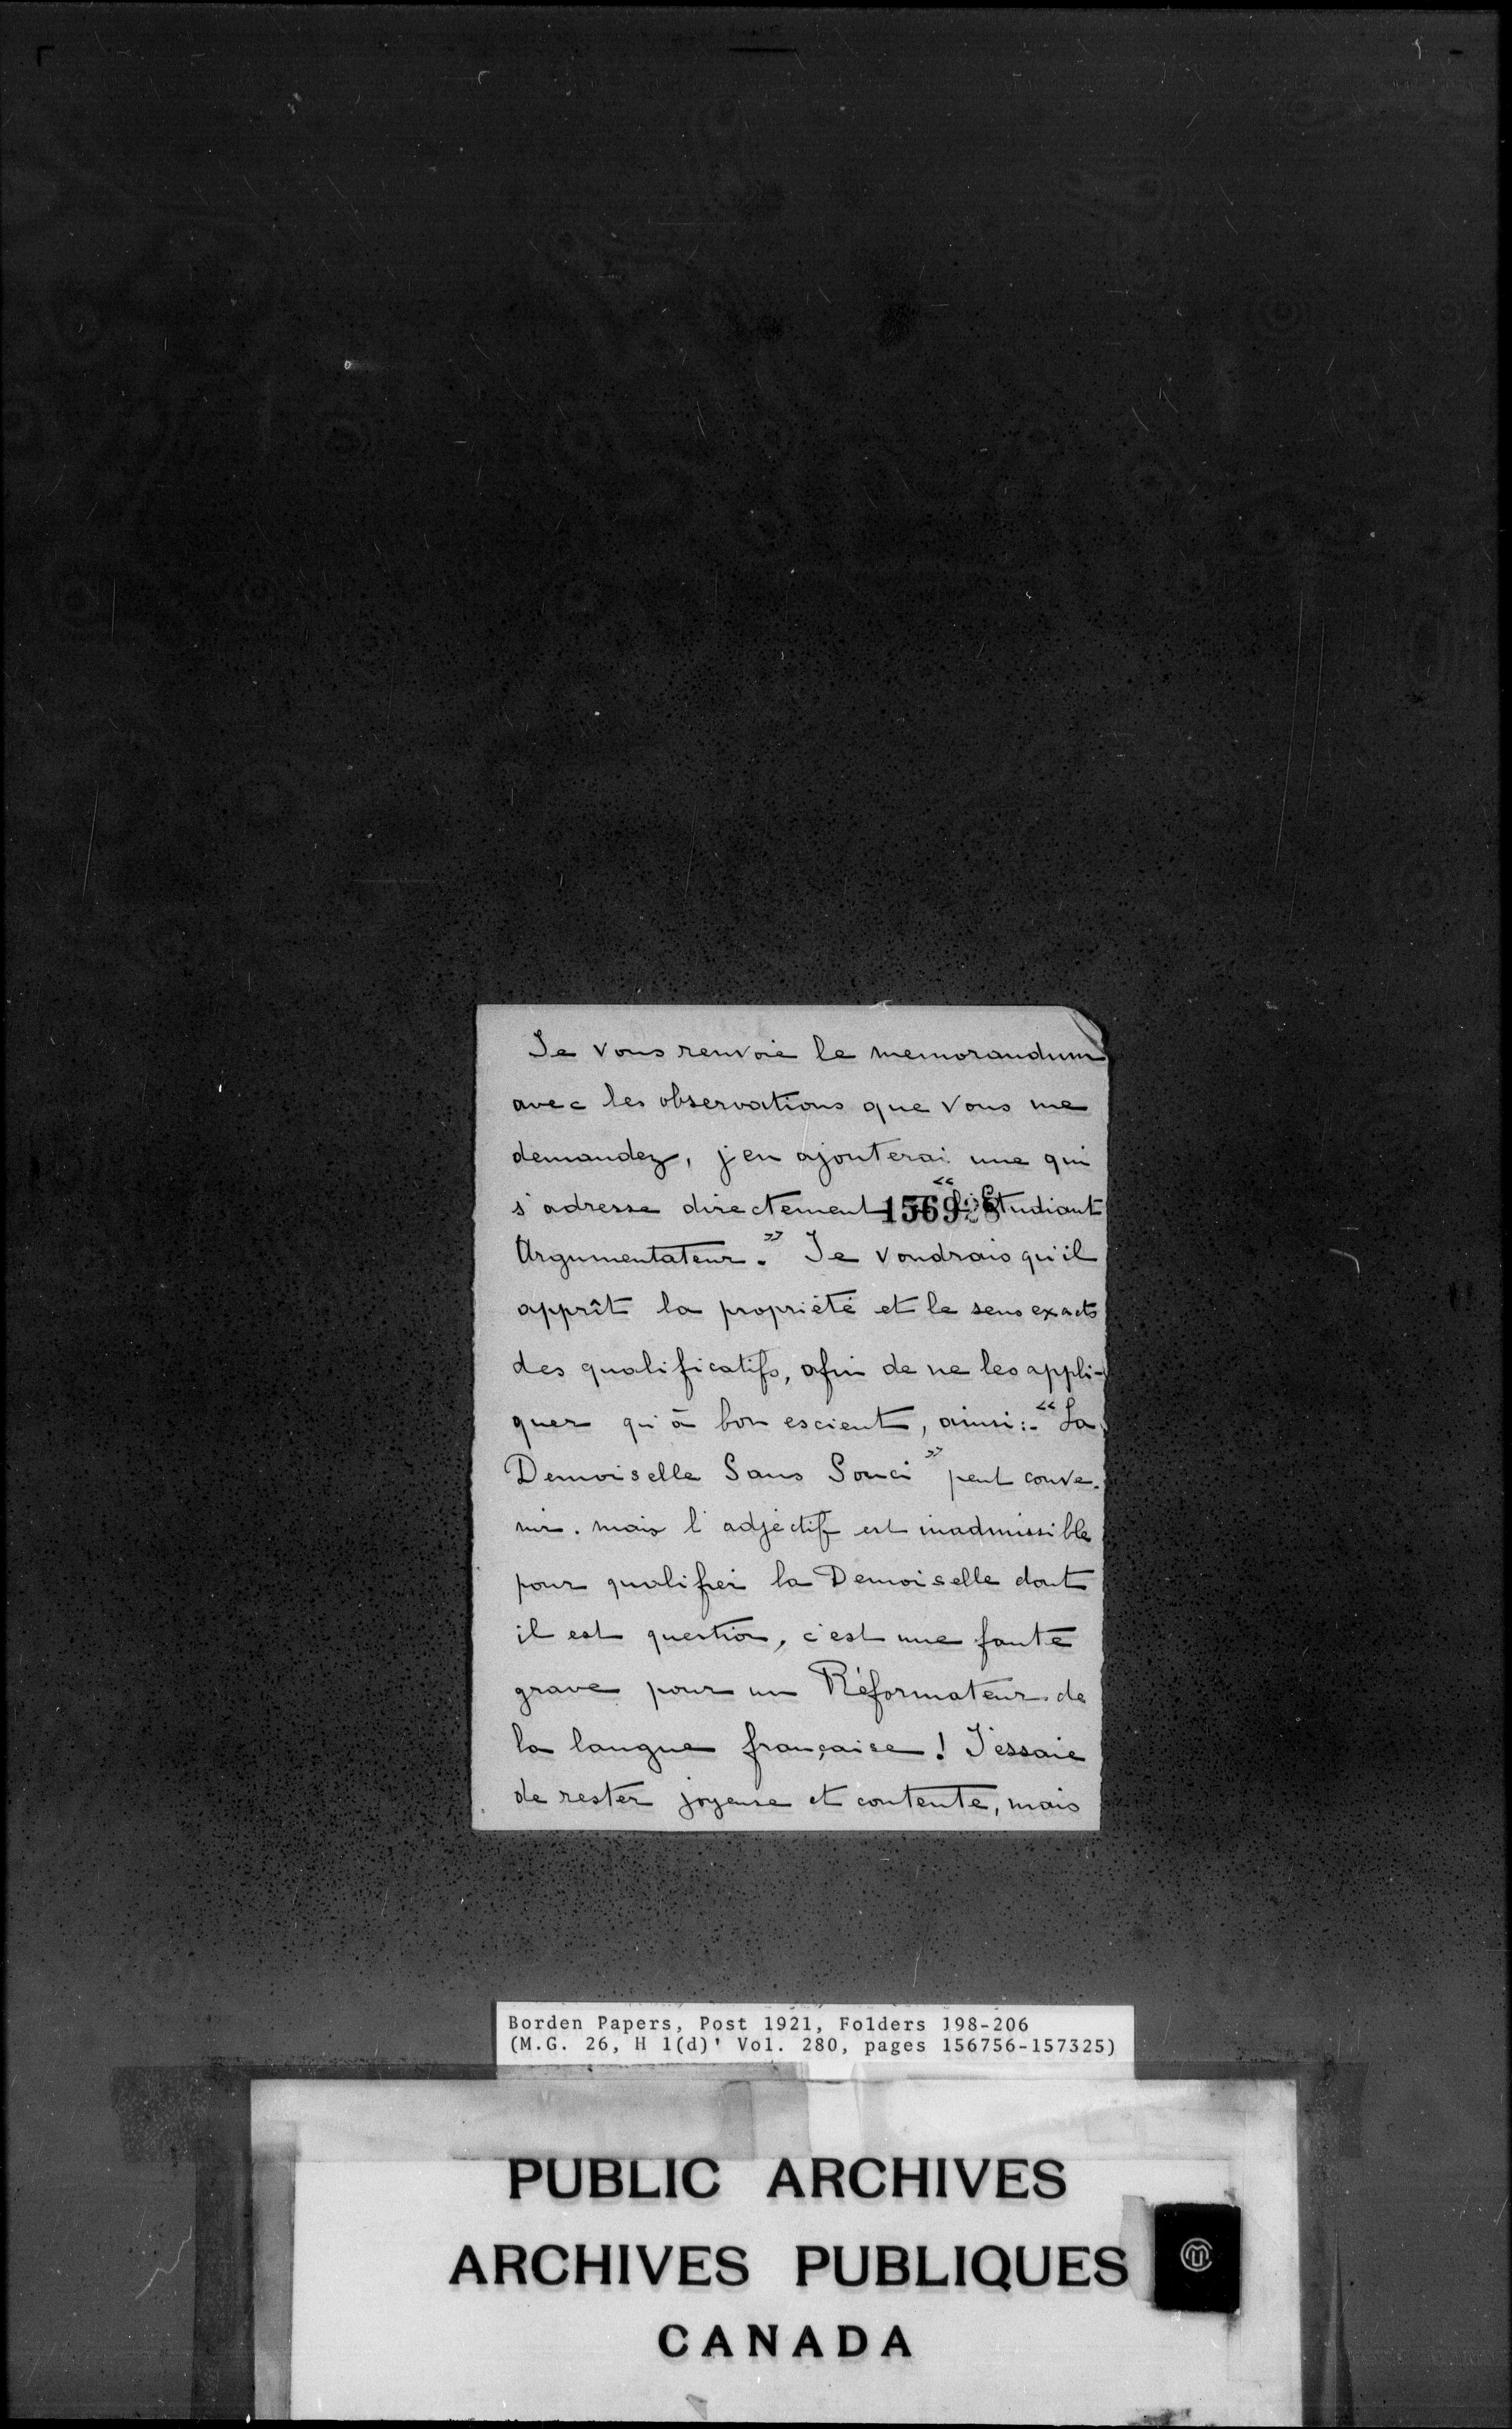 Je vous renvoie le memorandum
avec les observations que vous me
demandez, j'en ajouterai une qui
s'adresse directement 156928 “l'Etudiant
Argumentateur.” Je voudrais qu'il
apprît la propriété et le sens exacts
des qualificatifs, afin de ne les appli-
quer qu'à bon escient, ainsi:- “La
Demoiselle Sans Souci” peut conve-
nir. mais l'adjectif est inadmissible
pour qualifier la Demoiselle dont
il est question, c'est une faute
grave pour un Réformateur de
la langue française! J'essaie
de rester joyeuse et contente, mais
Borden Papers, Post 1921, Folders 198-206
(M.G. 26, H 1(d)' Vol. 280, pages 156756-157325)
PUBLIC ARCHIVES
ARCHIVES PUBLIQUES
CANADA